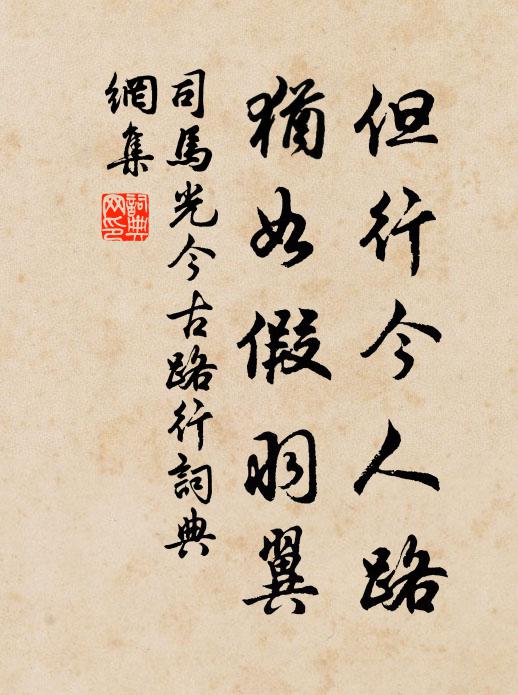 但行今人路
猶如假羽翼
司馬光今古路行詞典
網集
詞典
网印